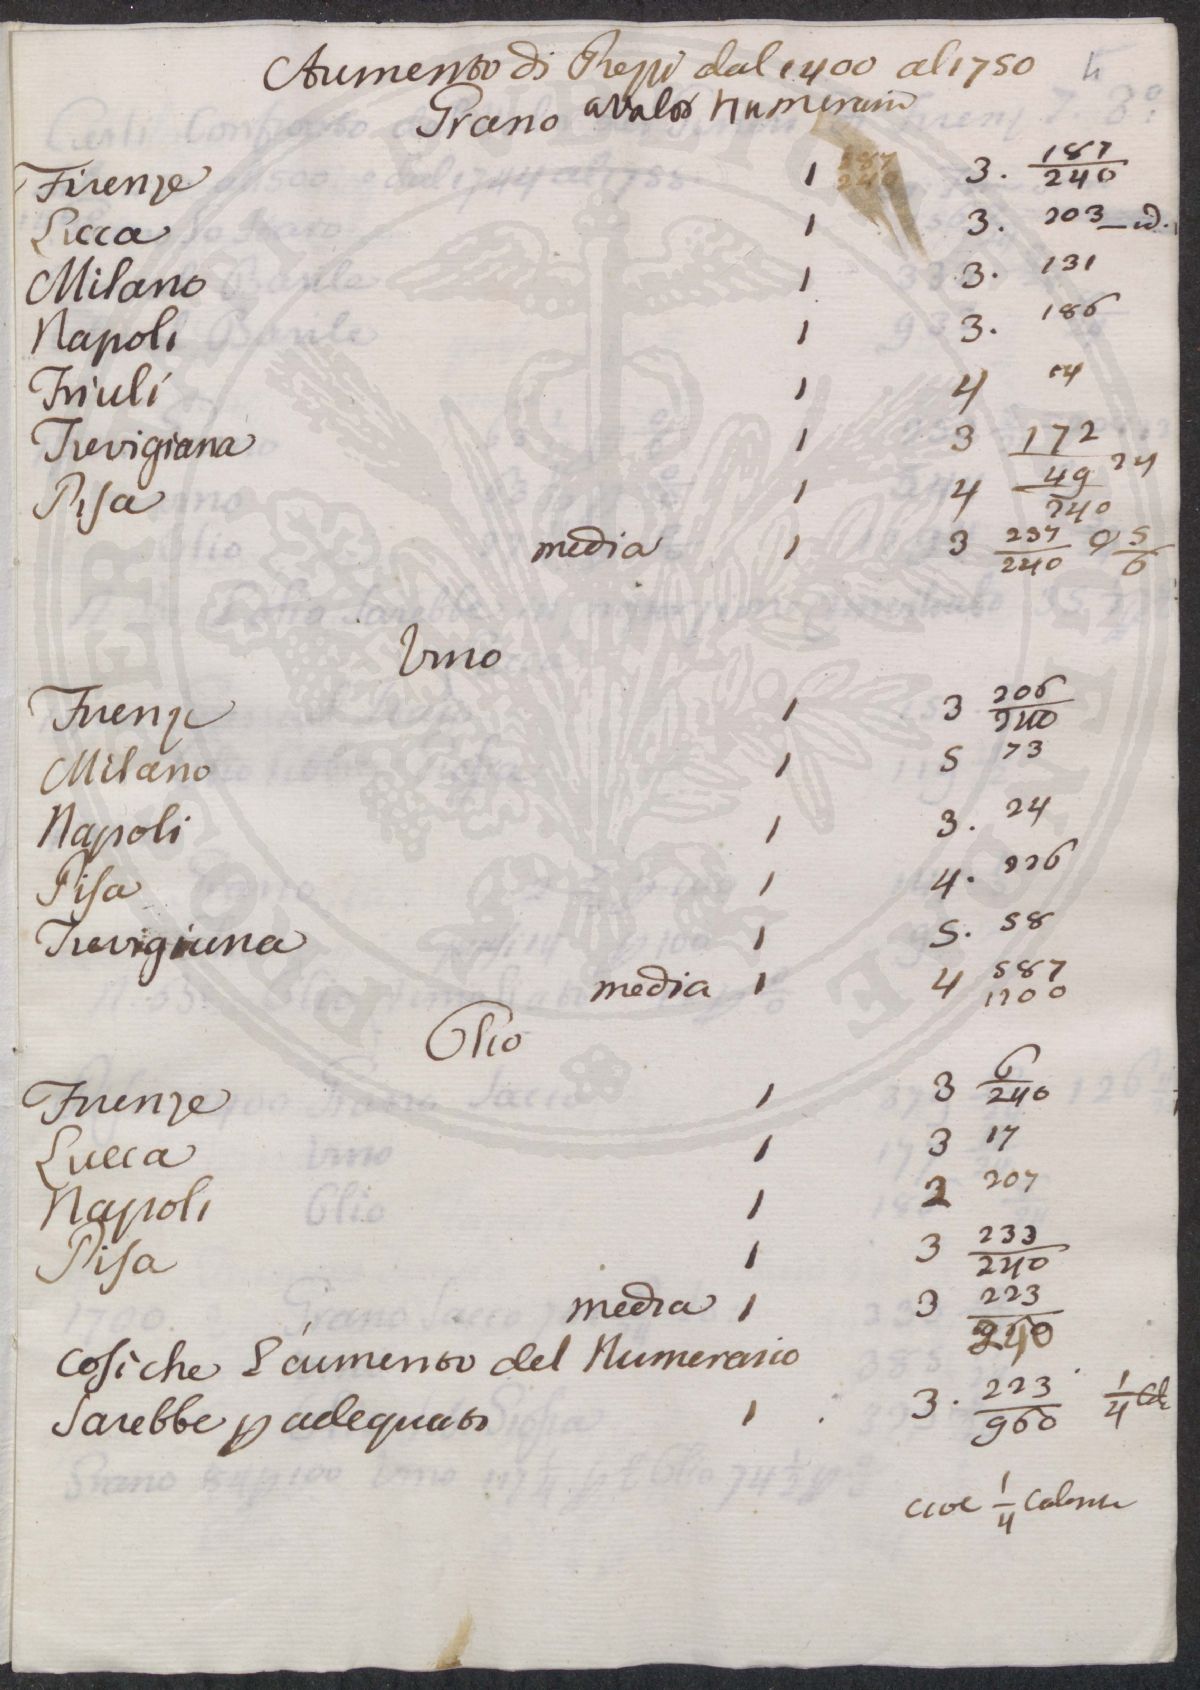 Aumento di Prezzi dal 1400 al 1750
Grano a valor Numerario
Firenze 1 3. 187/240
Lucca 1 3. 203 — id.
Milano 1 3. 131
Napoli 1 3. 186
Friuli 1 4 14
Trevigiana 1 3 172
Pisa 1 4 49/240
media 1 3 237/240 5/6
Vino
Firenze 1 3 206/240
Milano 1 5 73
Napoli 1 3. 24
Pisa 1 4. 226
Trevigiana 1 5. 58
media 1 4 587/1200
Olio
Firenze 1 3 6/240
Lucca 1 3 17
Napoli 1 2 207
Pisa 1 3 233/240
media 1 3 223/240
Cosiche L'aumento del Numerario
Sarebbe p adequato 1 3. 223/960 1/4
cioè 1/4